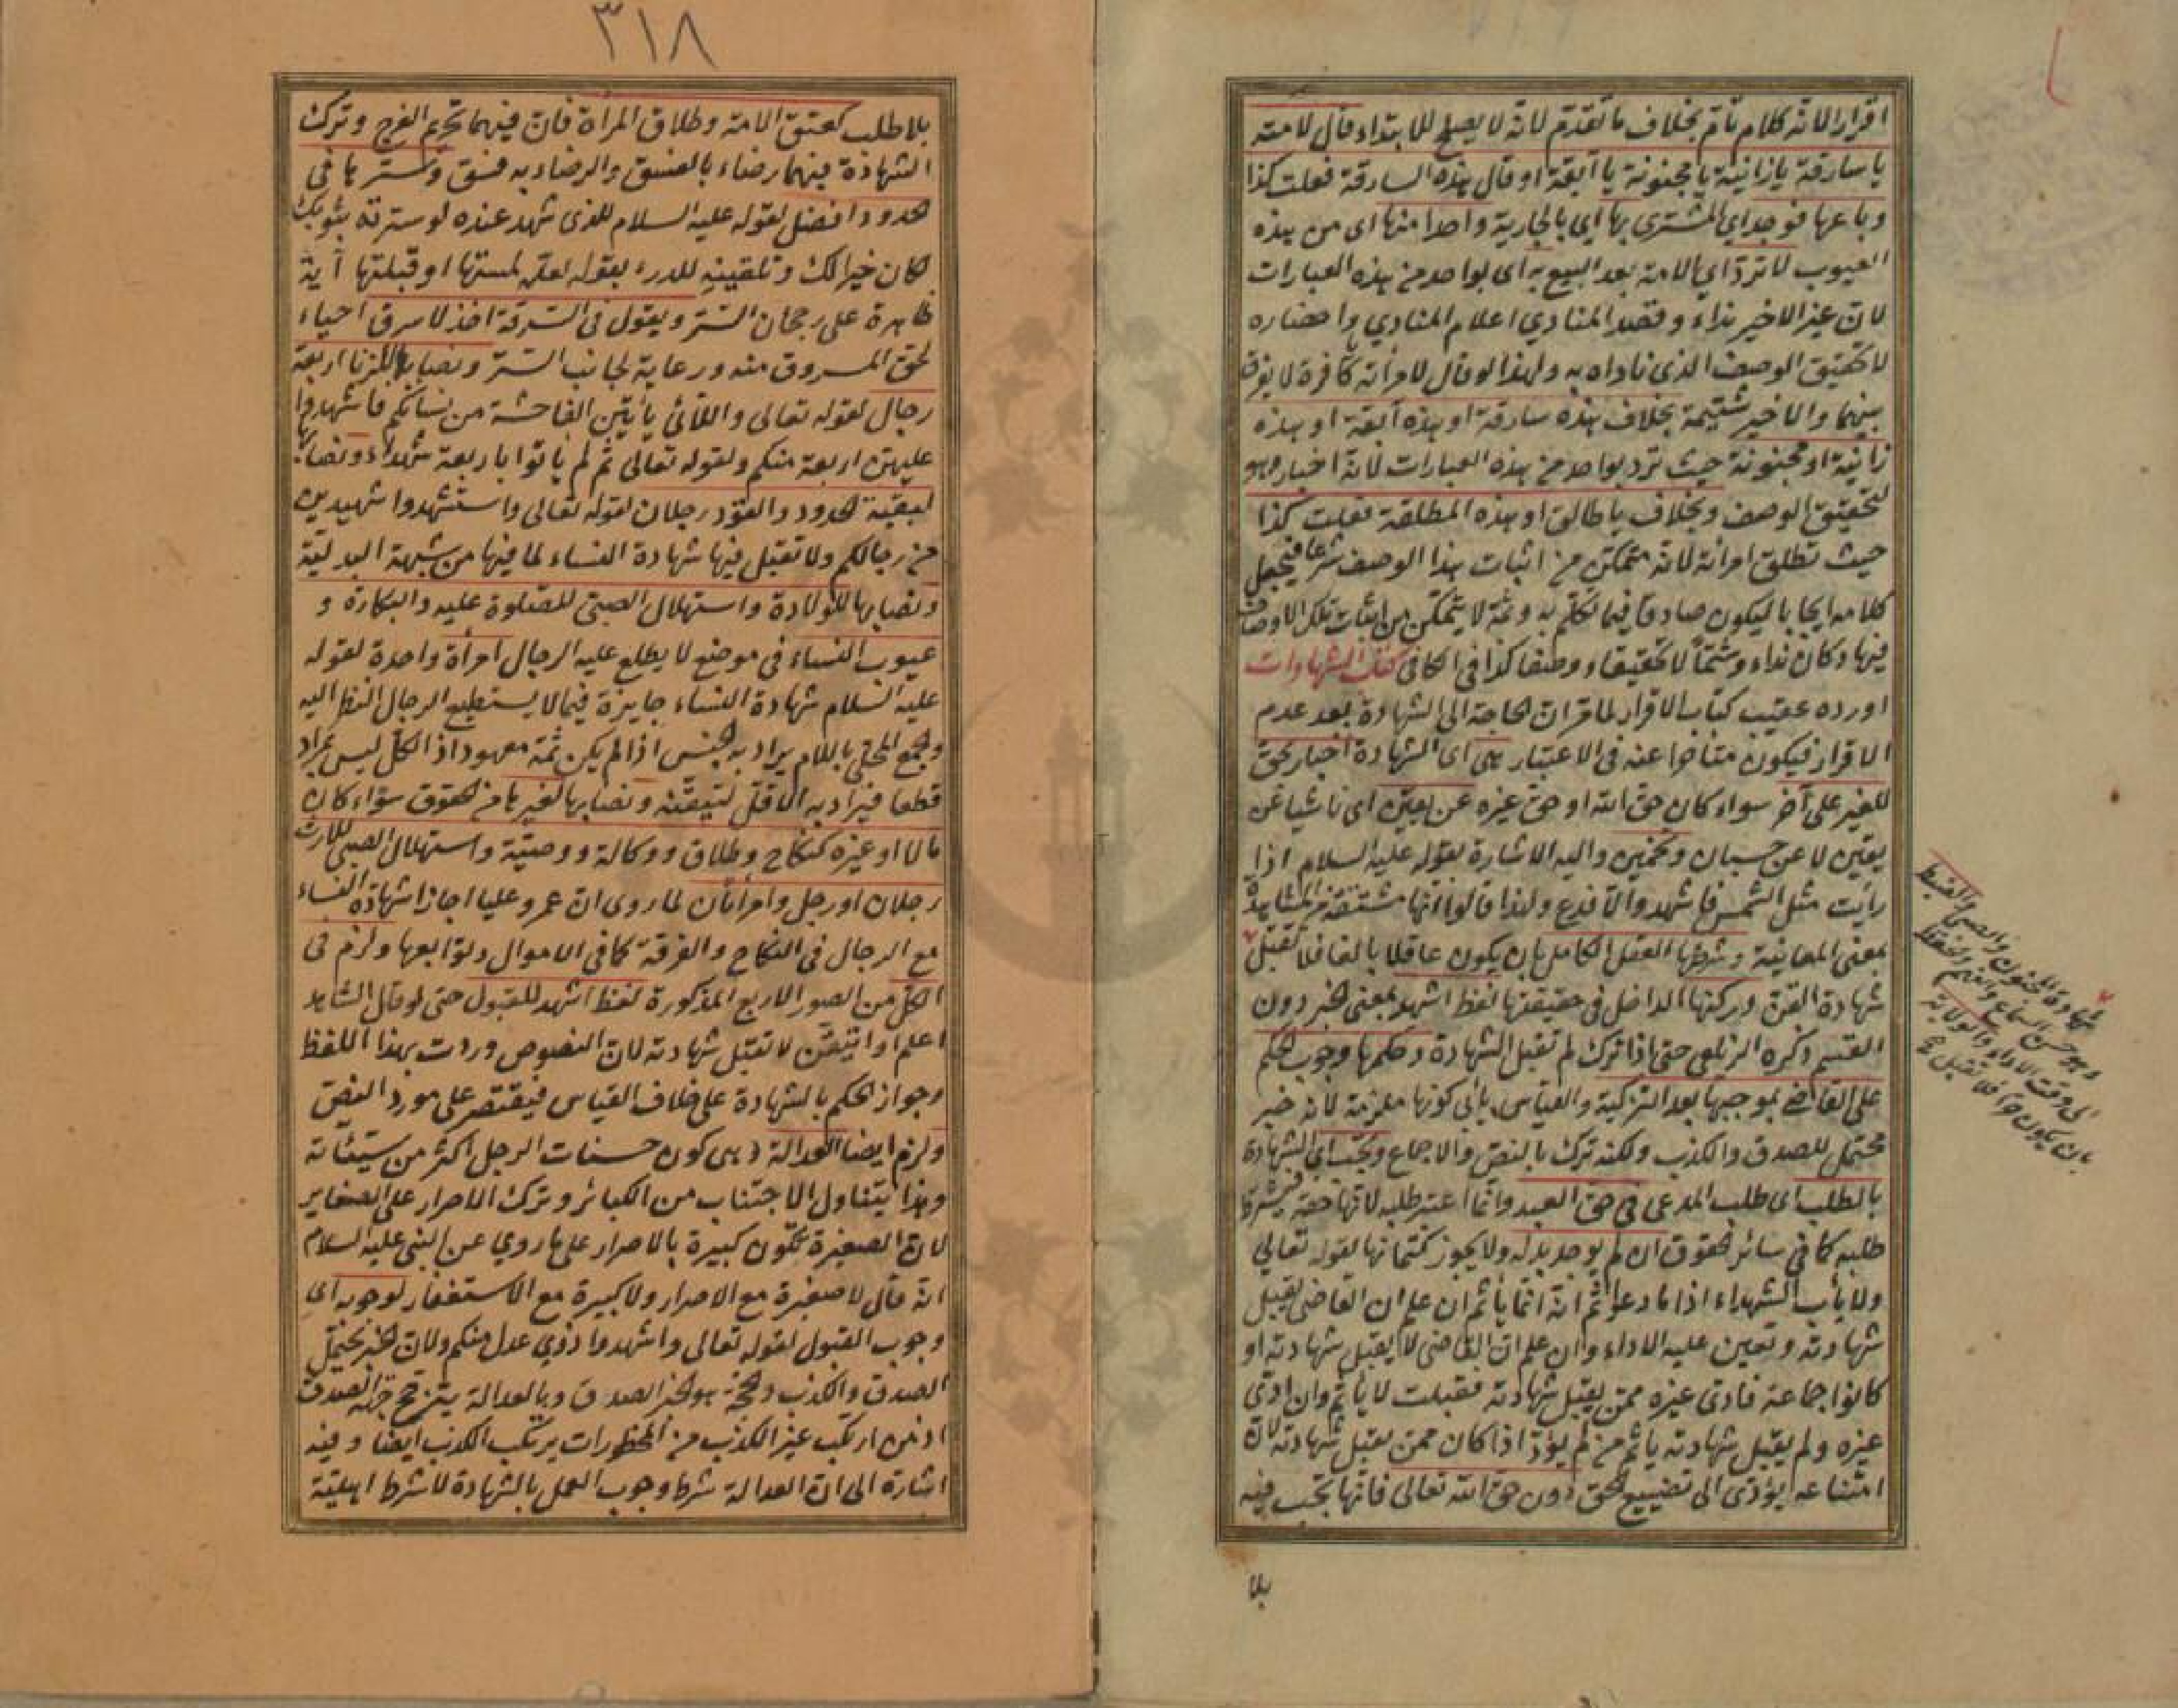 اقرار الانه كلام تام بخلاف ما تقدم لانه لا يصلح للابتداء قال لامته
يا سارقة يا زانية يا مجنونة يا آبقة او قال هذه السارقة فعلت كذا
وباعها فوجد اي المشتري بها اي بالجارية واحدا منها اى من هذه
العيوب لا ترد اي الامة بعد البيع به اى بواحد من هذه العبارات
لان غير الاخير نداء وقصد المنادي اعلام المنادي واحضاره
لا تحقيق الوصف الذى ناداه به ولهذا لو قال لامرأته كافرة لا يفرق
بينهما والاخير شتيمة بخلاف هذه سارقة او هذه آبقة او هذه
زانية او مجنونة حيث ترد بواحد من هذه العبارات لانه اخبار وهو
لتحقيق الوصف وبخلاف يا طالق او هذه المطلقة فعلت كذا
حيث تطلق امرأته لانه متمكن من اثبات هذا الوصف شرعا فيجعل
كلامه ايجابا ليكون صادقا فيما تكلم به وثمة لا يتمكن من اثبات تلك الاوصاف
فيها وكان نداء وشتما لا تحقيقا ووصفا كذا فى الكافى كتاب الشهادات
اورده عقيب كتاب الاقرار لما مر ان الحاجة الى الشهادة بعد عدم
الاقرار فيكون متأخرا عنه فى الاعتبار هى اى الشهادة اخبار بحق
للغير على آخر سواء كان حق الله او حق غيره عن يقين اى ناشيا عن
يقين لا عن حسبان وتخمين واليه الاشارة بقوله عليه السلام اذا
رأيت مثل الشمس فاشهد والا فدع ولهذا قالوا انها مشتقة من المشاهدة
بمعنى المعاينة وشرطها العقل الكامل بان يكون عاقلا بالغا فلا تقبل
شهادة القن وركنها الداخل فى حقيقتها لفظ اشهد بمعنى الخبر دون
القسم ذكره الزيلعى حتى اذا ترك لم تقبل الشهادة وحكمها وجوب الحكم
على القاضى بموجبها بعد التزكية والقياس يأبى كونها ملزمة لانه خبر
محتمل للصدق والكذب ولكنه ترك بالنص والاجماع وتجب اى الشهادة
بالطلب اى طلب المدعى فى حق العبد وانما اعتبر طلبه لانها حقه فيشترط
طلبه كما فى سائر الحقوق ان لم يوجد بدله ولا يجوز كتمانها لقوله تعالى
ولا يأب الشهداء اذا ما دعوا ثم انه انما يأثم ان علم ان القاضى يقبل
شهادته وتعين عليه الاداء وان علم ان القاضى لا يقبل شهادته او
كانوا جماعة فادى غيره ممن يقبل شهادته فقبلت لا يأثم وان ادى
غيره ولم يقبل شهادته يأثم من لم يؤد اذا كان ممن يقبل شهادته لان
امتناعه يؤدى الى تضييع الحق دون حق الله تعالى فانها تجب فيه
بلا
شهادة المجنون والصبى والضبط
وهو حسن السماع والفهم والحفظ
الى وقت الاداء والولاية
بان يكون حرا فلا تقبل
٣١٨
بلا طلب كعتق الامة وطلاق المرأة فان فيهما تحريم الفرج وترك
الشهادة فيهما رضاء بالفسق والرضاء به فسق وسترها فى
الحدود افضل لقوله عليه السلام للذى شهد عنده لو سترته بثوبك
لكان خيرا لك وتلقينه للدرء بقوله لعله لمستها او قبلتها آية
ظاهرة على رجحان الستر ويقول فى السرقة اخذ لا سرق احياء
لحق المسروق منه ورعاية لجانب الستر ونصابها للزنا اربعة
رجال لقوله تعالى واللاتى يأتين الفاحشة من نسائكم فاستشهدوا
عليهن اربعة منكم ولقوله تعالى ثم لم يأتوا باربعة شهداء ونصابها
لبقية الحدود والقود رجلان لقوله تعالى واستشهدوا شهيدين
من رجالكم ولا تقبل فيها شهادة النساء لما فيها من شبهة البدلية
ونصابها للولادة واستهلال الصبى للصلوة عليه والبكارة و
عيوب النساء فى موضع لا يطلع عليه الرجال امرأة واحدة لقوله
عليه السلام شهادة النساء جايزة فيما لا يستطيع الرجال النظر اليه
والجمع المحلى باللام يراد به الجنس اذا لم يكن ثمة معهود اذ الكل ليس بمراد
قطعا فيراد به الاقل لتيقنه ونصابها لغيرها من الحقوق سواء كان
مالا او غيره كنكاح وطلاق ووكالة ووصية واستهلال الصبى للارث
رجلان او رجل وامرأتان لما روى ان عمر وعليا اجازا شهادة النساء
مع الرجال فى النكاح والفرقة كما فى الاموال وتوابعها ولزم فى
الكل من الصور الاربع المذكورة لفظ اشهد للقبول حتى لو قال الشاهد
اعلم او اتيقن لا تقبل شهادته لان النصوص وردت بهذا اللفظ
وجواز الحكم بالشهادة على خلاف القياس فيقتصر على مورد النص
ولزم ايضا العدالة وهى كون حسنات الرجل اكثر من سيئاته
وهذا يتناول الاجتناب من الكبائر وترك الاصرار على الصغاير
لان الصغيرة تكون كبيرة بالاصرار على ما روي عن النبى عليه السلام
انه قال لا صغيرة مع الاصرار ولا كبيرة مع الاستغفار لوجوبه اى
وجوب القبول لقوله تعالى واشهدوا ذوي عدل منكم ولان الخبر يحتمل
الصدق والكذب والحجة هو الخبر الصدق وبالعدالة يترجح جهة الصدق
اذ من ارتكب غير الكذب من المحظورات يرتكب الكذب ايضا وفيه
اشارة الى ان العدالة شرط وجوب العمل بالشهادة لا شرط اهلية